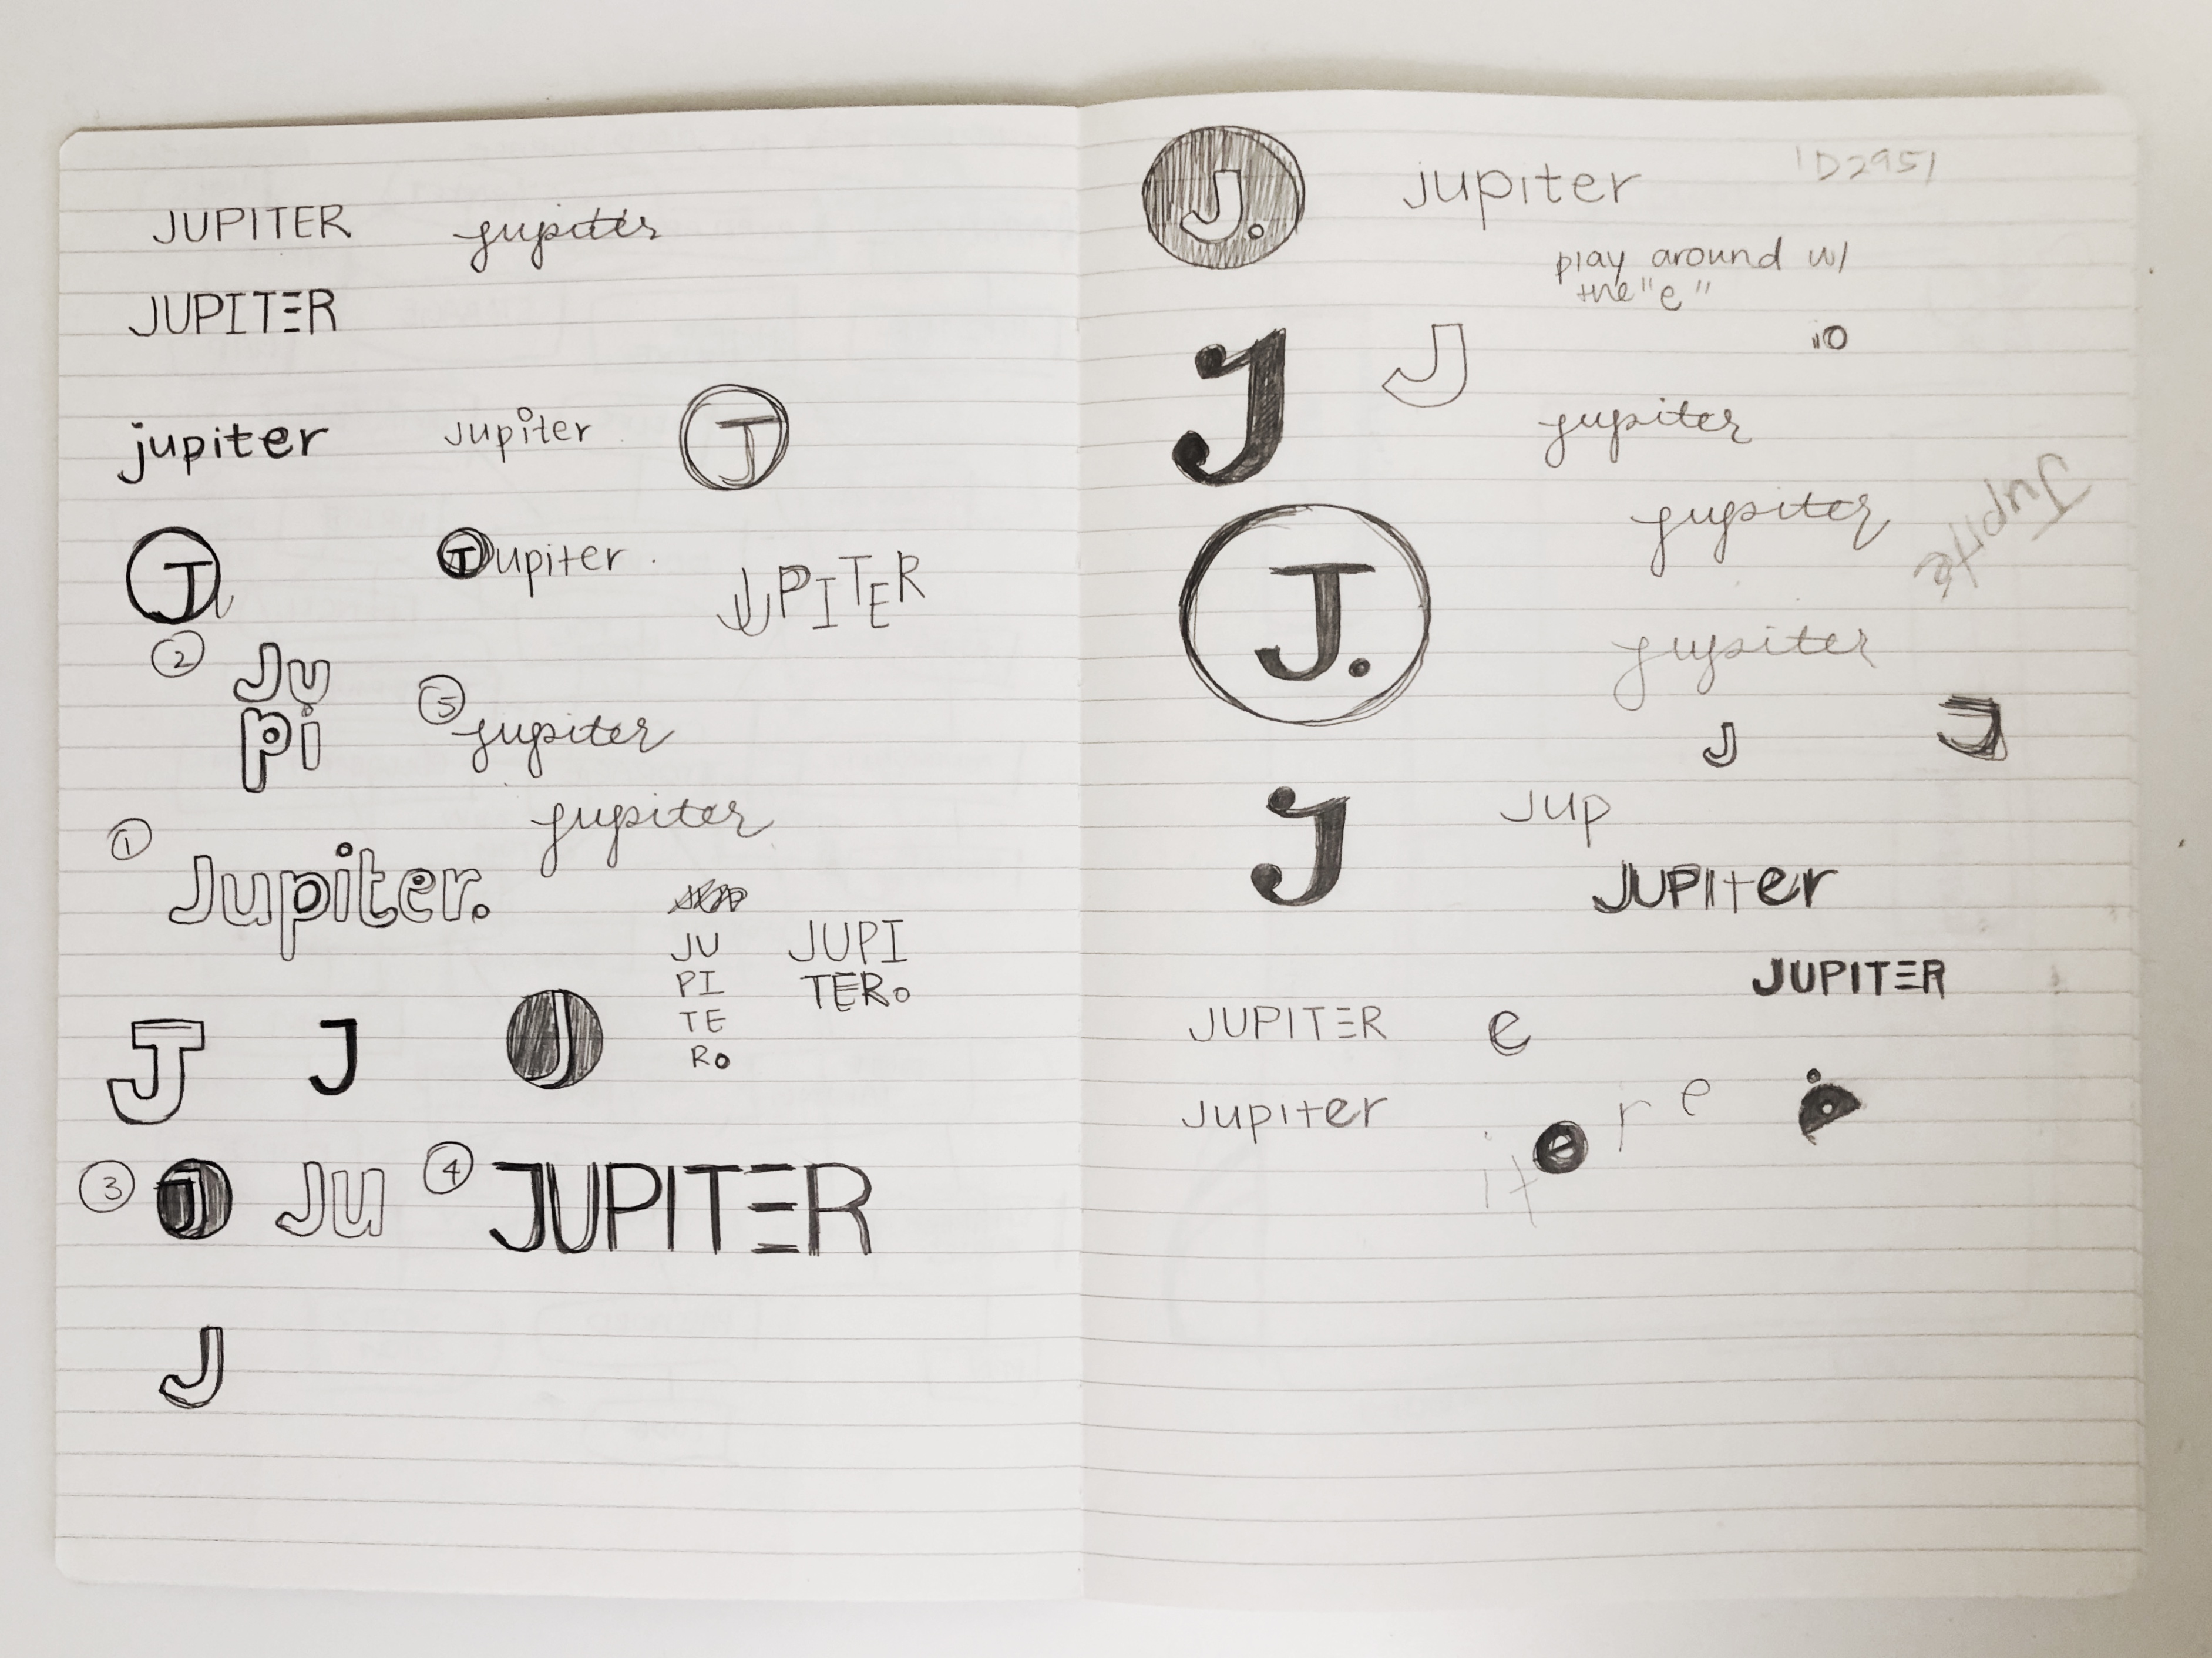 JUPITER jupiter
JUPITER
jupiter Jupiter J
J Jupiter JUPITER
2 Ju
pi
5 jupiter
jupiter
1
Jupiter.
JU
PI
TE
Ro
JUPI
TERo
J J J
3 J Ju 4 JUPITER
J
J. jupiter 1D2951
play around w/
the "e"
J J io
jupiter
jupiter Jupite
J.
jupiter
J J
J Jup
JUPIter
JUPITER
JUPITER e
Jupiter
it e r e